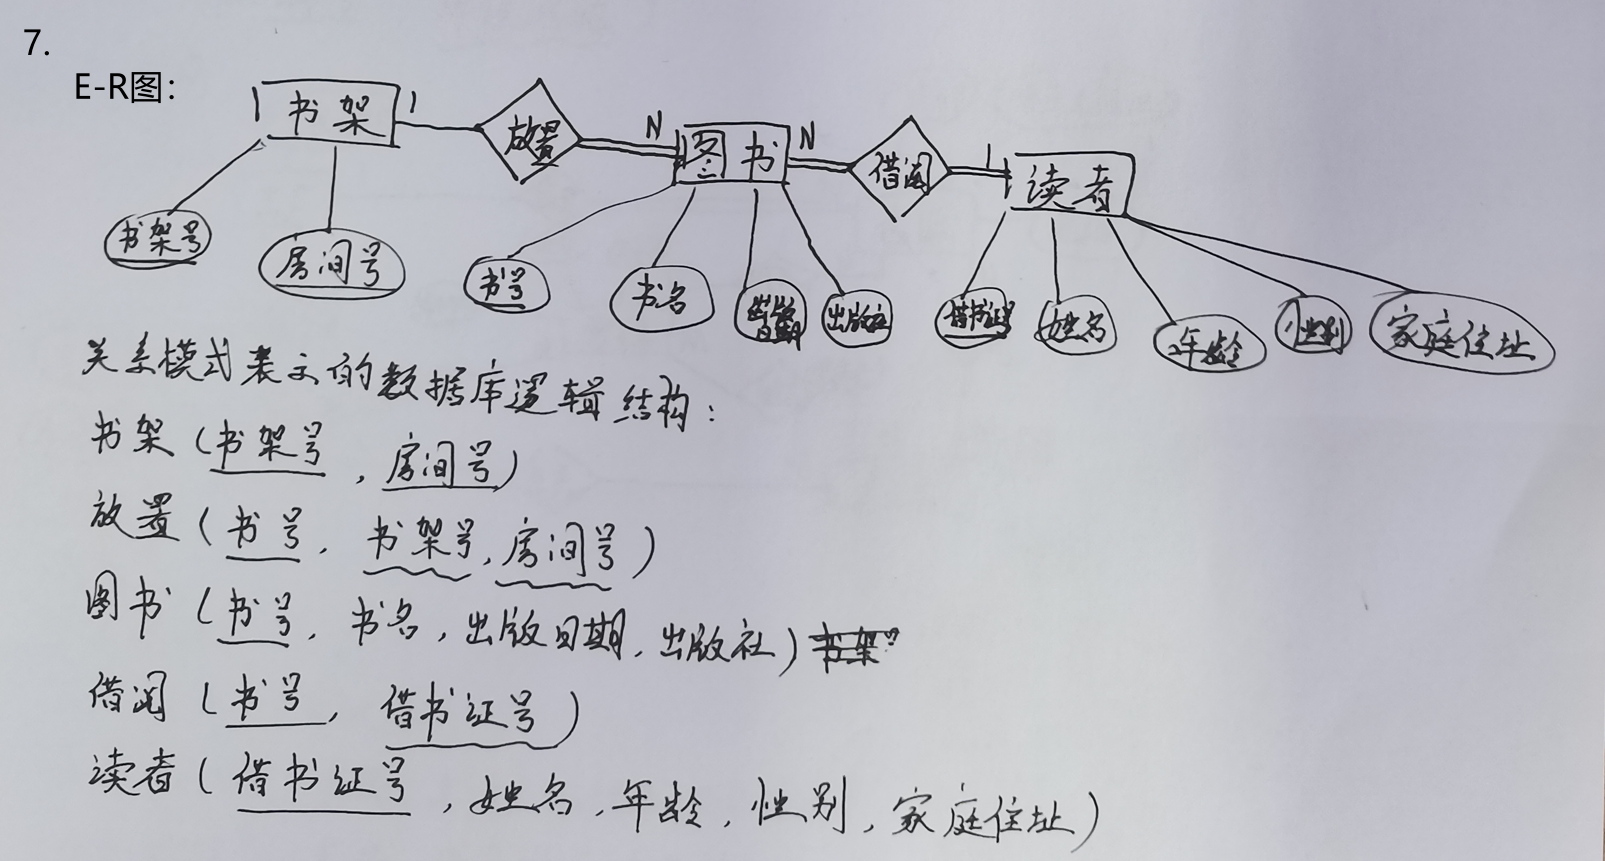 7.
E-R图：
书架 1 放置 N 图书 N 借阅 1 读者
书架号 房间号 书号 书名 出版日期 出版社 借书证号 姓名 年龄 性别 家庭住址
关系模式表示的数据库逻辑结构：
书架（书架号，房间号）
放置（书号，书架号，房间号）
图书（书号，书名，出版日期，出版社）
借阅（书号，借书证号）
读者（借书证号，姓名，年龄，性别，家庭住址）